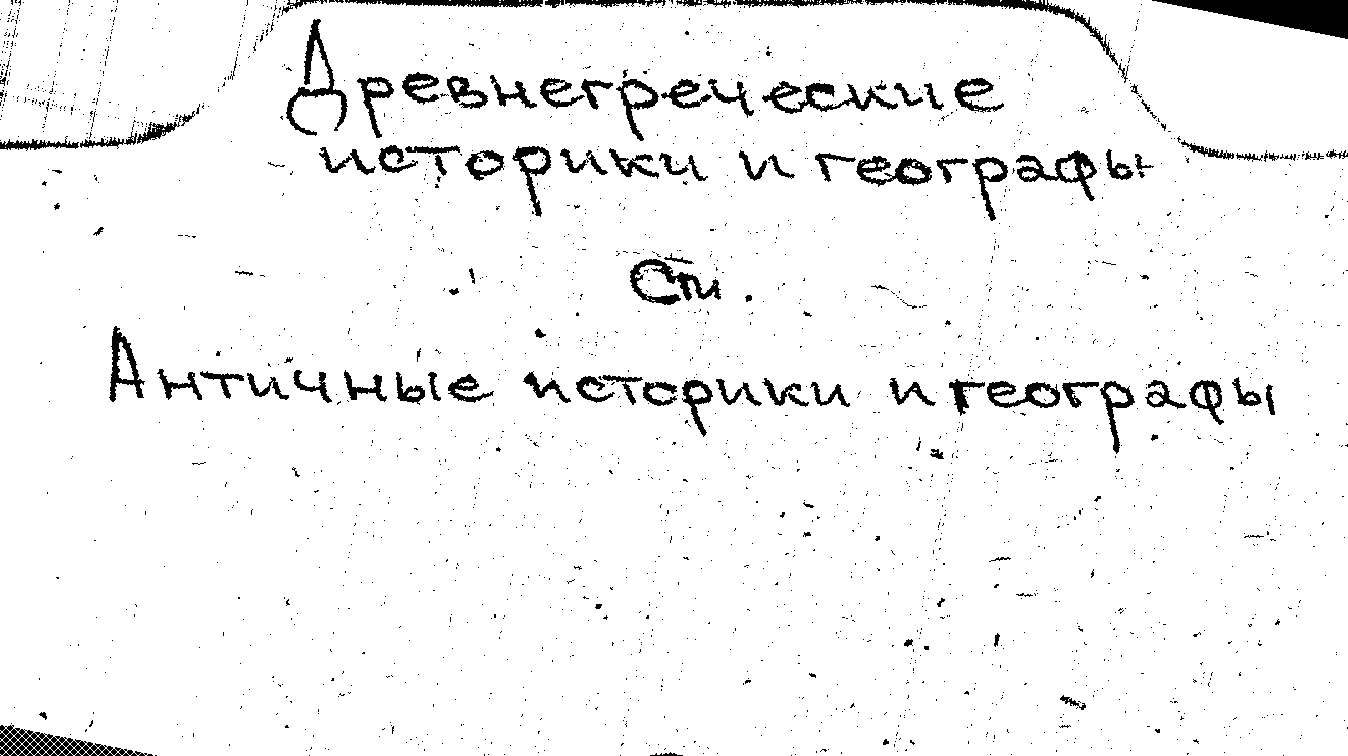 Древнегреческие
историки и географы
См.
Античные историки и географы